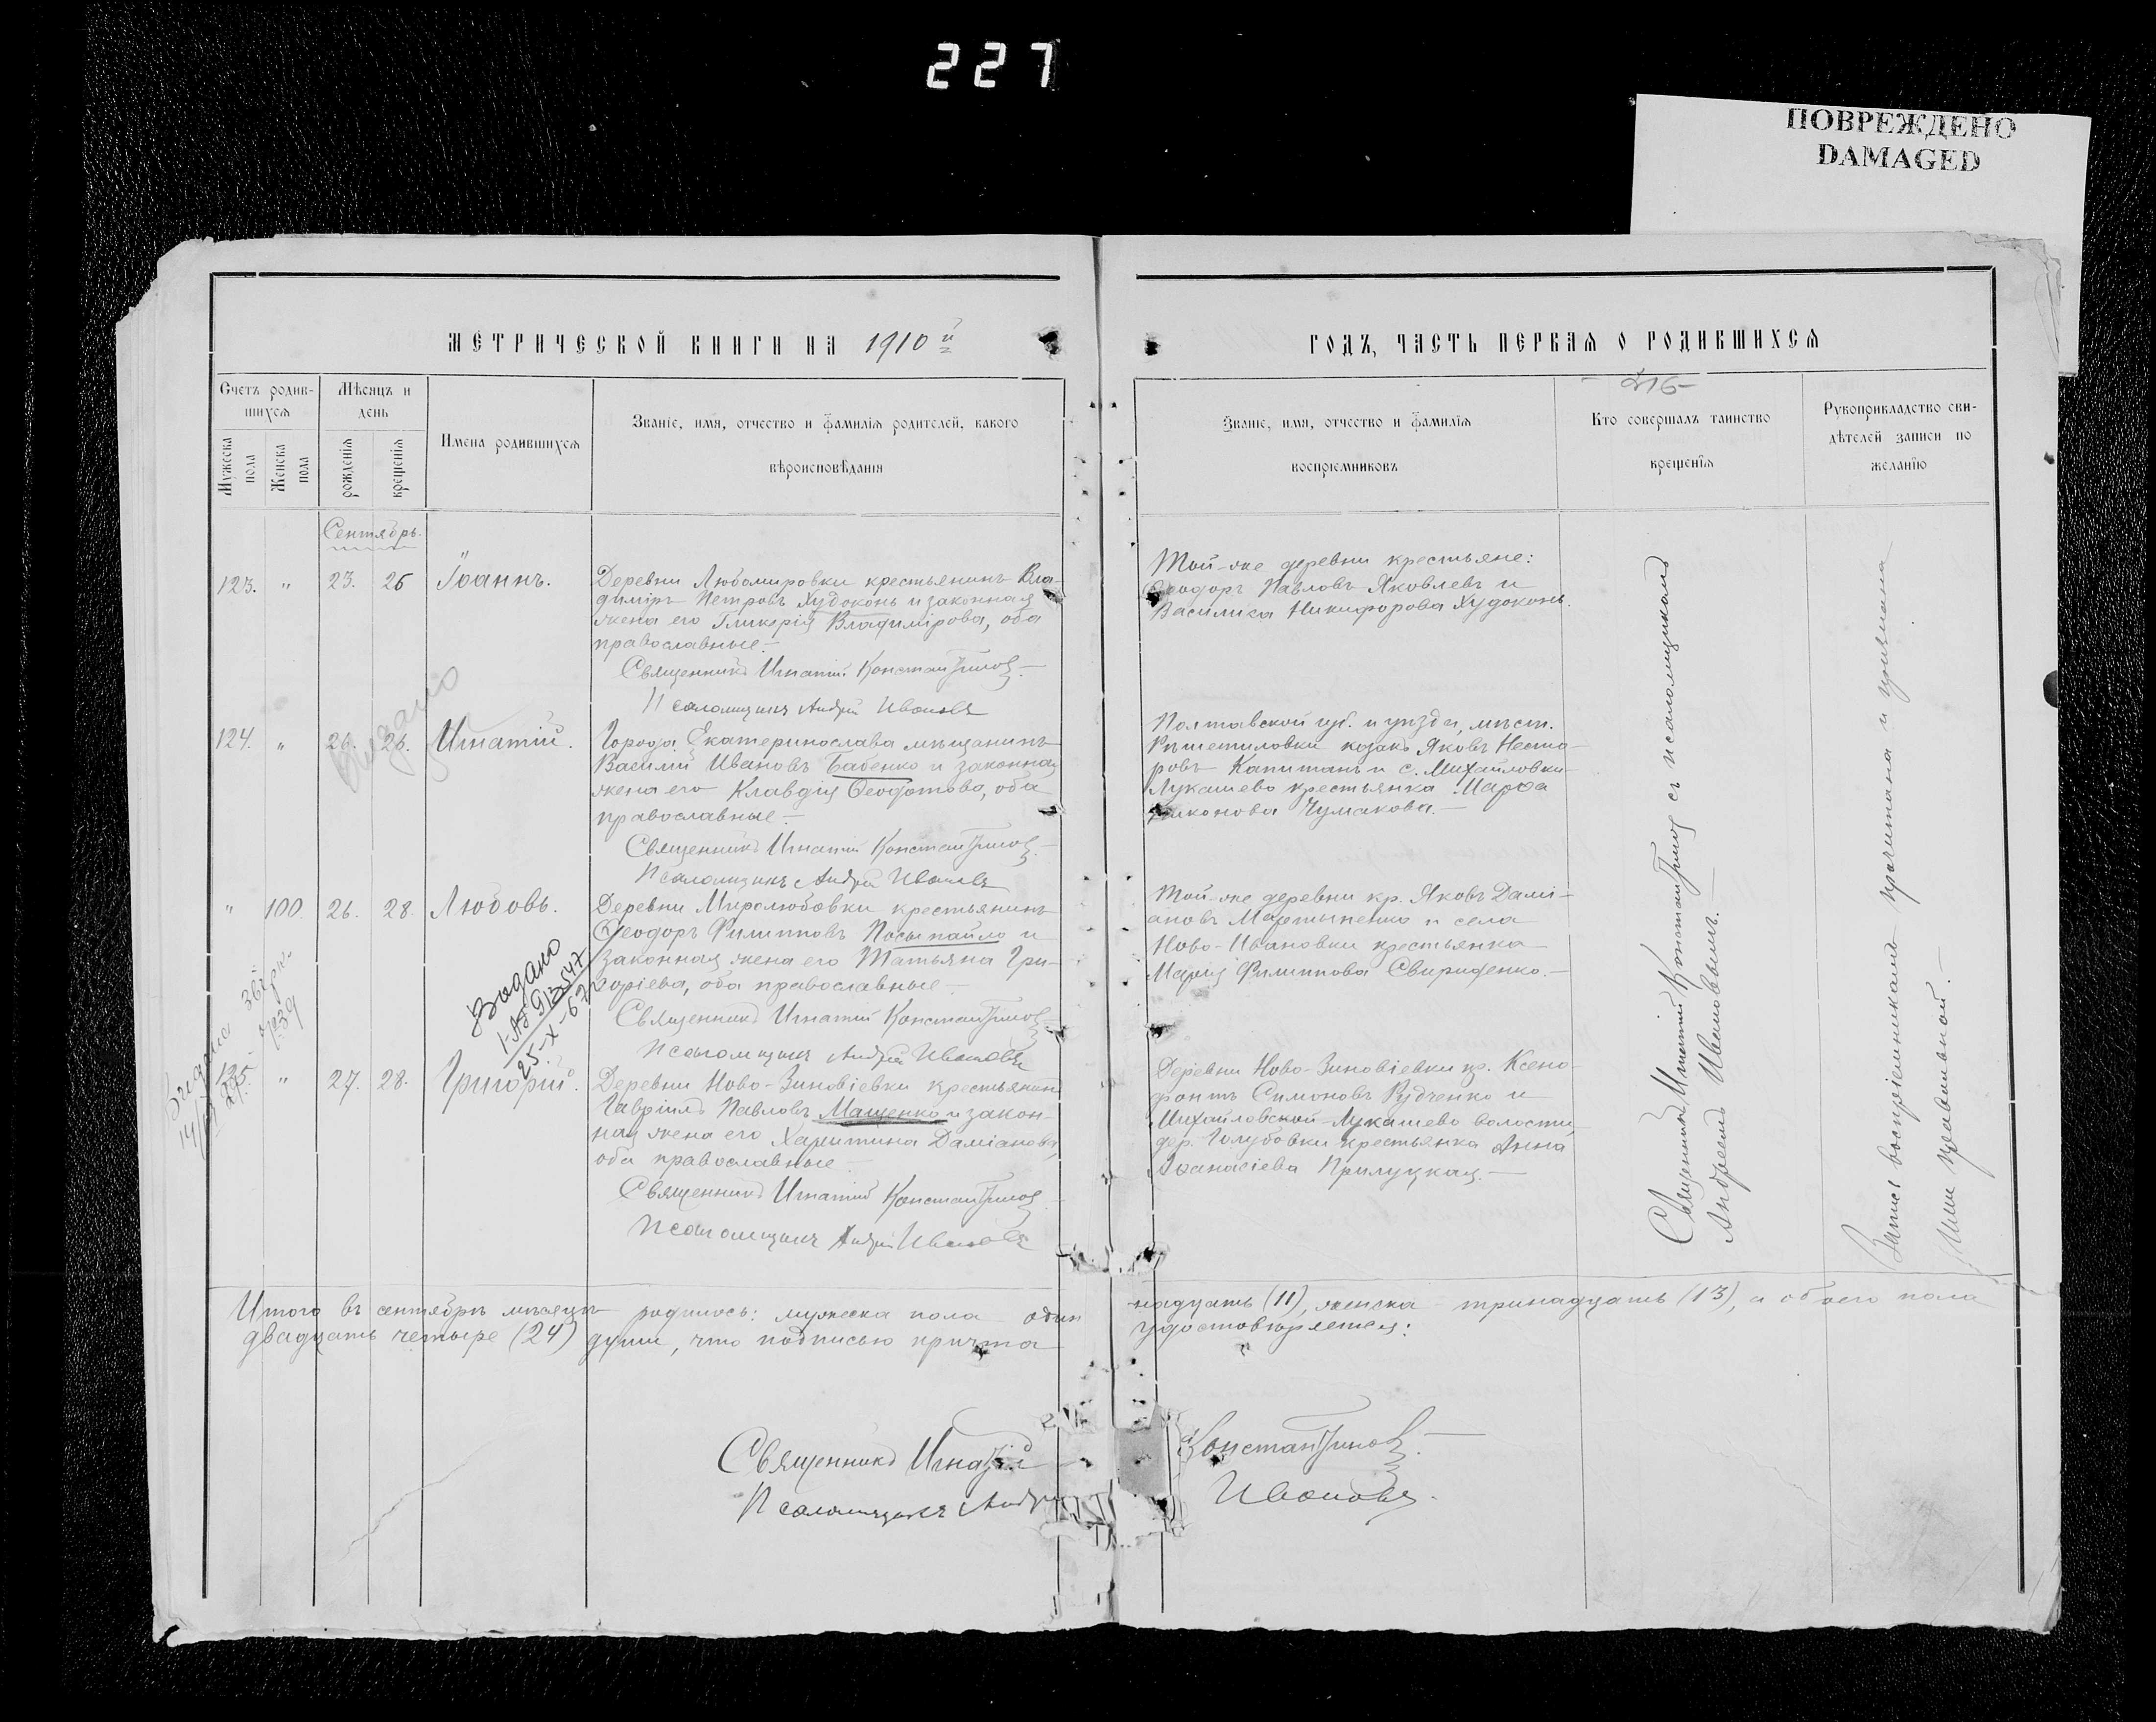 227
ПОВРЕЖДЕНО
DAMAGED
МЕТРИЧЕСКОЙ КНИГИ НА 1910 й
ГОДЪ, ЧАСТЬ ПЕРВАЯ О РОДИВШИХСЯ
Счетъ родив-
шихся
Мѣсяцъ и
день
Мужеска
пола
Женска
пола
рожденія
крещенія
Имена родившихся
Званіе, имя, отчество и фамилія родителей, какого
вѣроисповѣданія
Званіе, имя, отчество и фамилія
воспріемниковъ
- 216 -
Кто совершалъ таинство
крещенія
Рукоприкладство сви-
дѣтелей записи по
желанію
Сентябрь.
123. " 23. 26 Іоаннъ.
Деревни Любомировки крестьянинъ Вла-
диміръ Петровъ Худоконь и законная
жена его Гликерія Владимірова, оба
православные.-
Священникъ Игнатій Константиновъ.-
Псаломщикъ Андрей Ивановъ
Той-же деревни крестьяне:
Ѳеодоръ Павловъ Яковлевъ и
Василиса Никифорова Худоконь.
Видано
124. " 26. 26. Игнатій.
Города Екатеринослава мѣщанинъ
Василій Ивановъ Бабенко и законная
жена его Клавдія Ѳеодотова, оба
православные.-
Священникъ Игнатій Константиновъ.-
Псаломщикъ Андрей Ивановъ
Полтавской губ. и уѣзда, мѣст.
Рѣшетиловки козакъ Яковъ Несто-
ровъ Капитанъ и с. Михайловки-
Лукашево крестьянка Марѳа
Чумакова.-
" 100 26. 28. Любовь.
Деревни Миролюбовки крестьянинъ
Ѳеодоръ Филипповъ Посыпайло и
законная жена его Татьяна Гри-
горіева, оба православные.-
Священникъ Игнатій Константиновъ-
Псаломщикъ Андрей Ивановъ
Той-же деревни кр. Яковъ Дамі-
ановъ Мартыненко и села
Ново-Ивановки крестьянка
Марія Филиппова Свириденко.-
Видано
25-X-67
125. " 27. 28. Григорій.
Деревни Ново-Зиновіевки крестьянинъ
Гавріилъ Павловъ Мащенко и закон-
ная жена его Харитина Даміанова,
оба православные-
Священникъ Игнатій Константиновъ.
Псаломщикъ Андрей Ивановъ
Деревни Ново-Зиновіевки кр. Ксено-
фонтъ Симоновъ Рудченко и
Михайловской-Лукашево волости,
дер. Голубовки крестьянка Анна
Аѳанасіева Прилуцкая.-
Священникъ Игнатій Константиновъ съ псаломщикомъ
Андреемъ Ивановымъ.-
Запись воспріемниками прочитана и признана
ими правильной.-
Итого въ сентябрѣ мѣсяцѣ родилось: мужеска пола один-
надцать (11), женска тринадцать (13), а обоего пола
двадцать четыре (24) души, что подписью причта
удостовѣряется:
Священникъ Игнатій Константиновъ.-
Псаломщикъ Андрей Ивановъ.